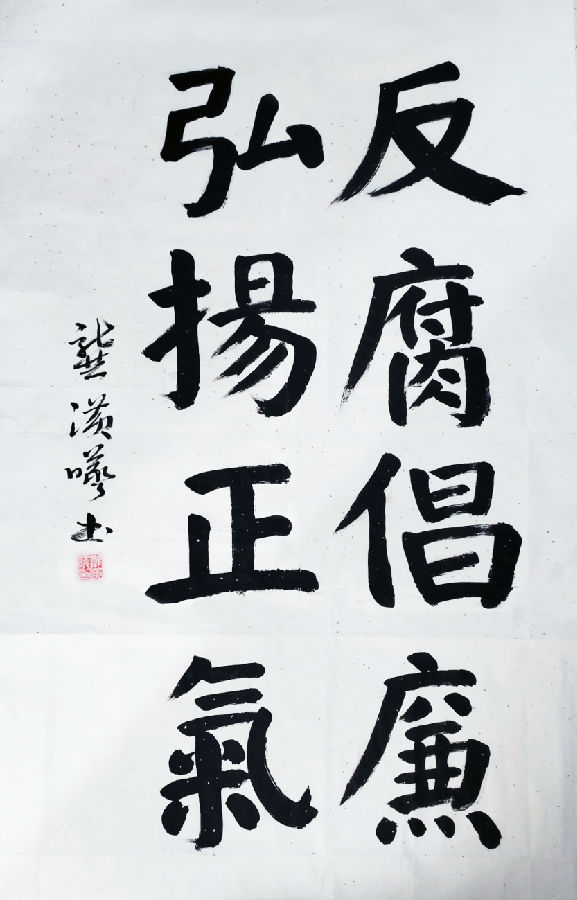 反腐倡廉
弘揚正氣
龔漢曦书